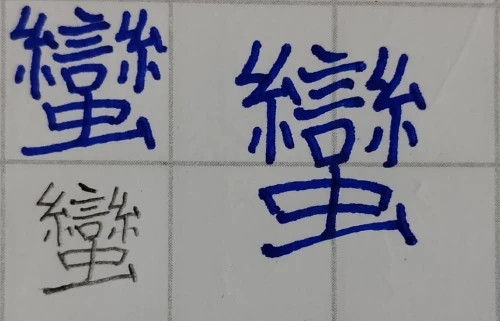 蠻 蠻
蠻